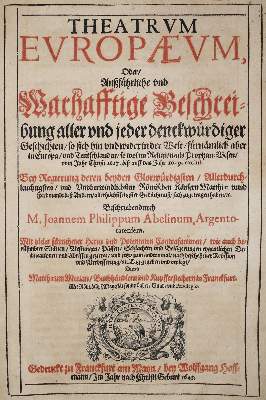 THEATRVM
EVROPÆVM,
Oder/
Außführliche und
Warhafftige Beschrei-
bung aller und jeder denckwürdiger
Geschichten/ so sich hin und wider in der Welt/ fürnämlich aber
in Europa/ und Teutschlanden/ so wol im Religion als Prophan-Wesen/
vom Jahr Christi
Bey Regierung deren beyden Glorwürdigsten / Allerdurch-
leuchtigsten/ und Unüberwindlichsten Römischen Käysern Matthiæ und
Ferdinandi
Beschrieben durch
M. Joannem Philippum Abelinum, Argento-
ratensem.
Mit vieler fürnehmer Herrn und Potentaten Contrafacturen/ wie auch be-
rühmbter Stätten/ Vestungen/ Pässen/ Schlachten und Belägerungen eygentlichen De-
lineationen und Abrissen gezieret/ und
Durch
Matthæum Merian/ Buchhändlern und Kupfferstechern in Franckfurt.
Gedruckt zu Franckfurt am Mayn/ bey Wolffgang Hoff-
mann/ Im Jahr nach Christi Geburt